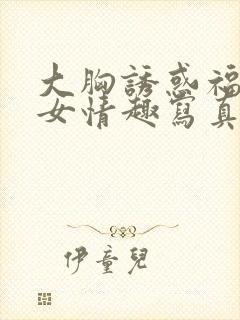 大胸誘惑福
女情趣寫真
伊童兒